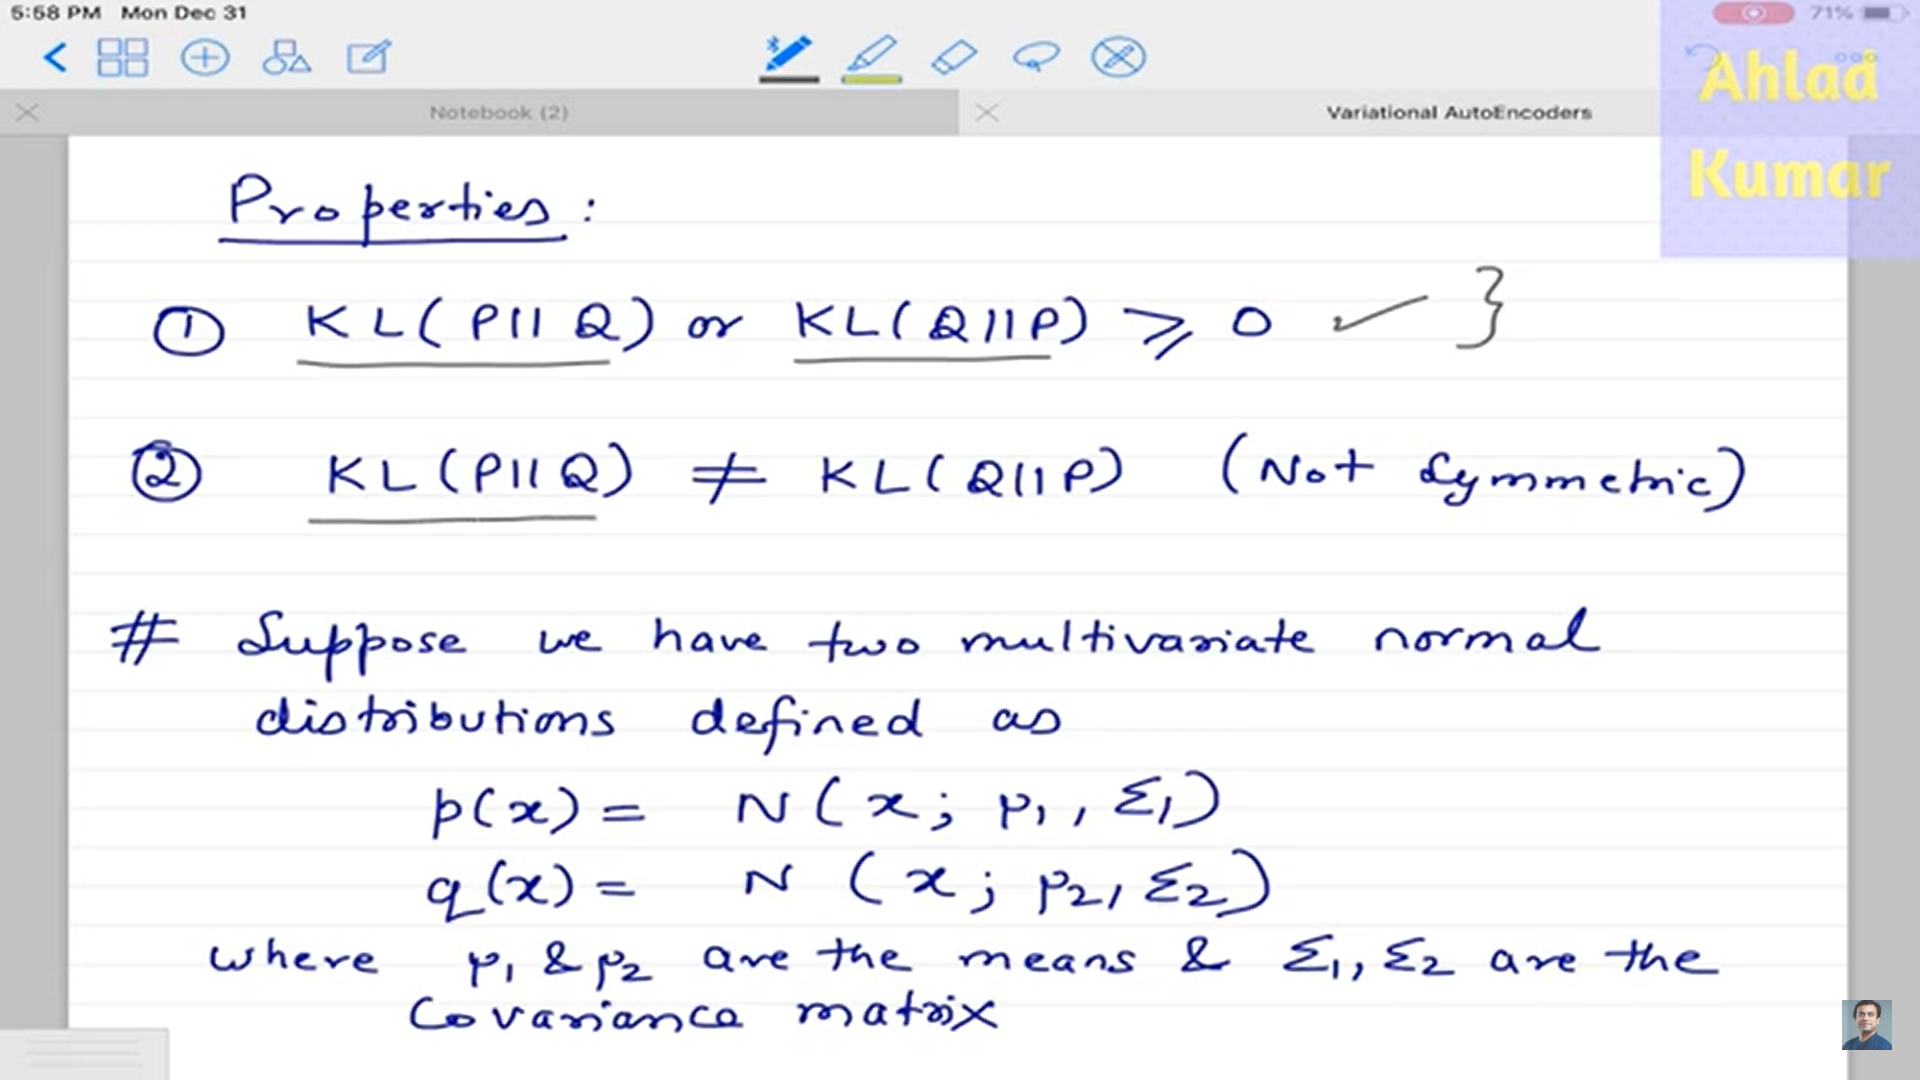 5:58 PM Mon Dec 31
71%
Ahlad
Kumar
Notebook (2)
Variational AutoEncoders
Properties :
① KL(P||Q) or KL(Q||P) ⩾ 0 ✓ }
② KL(P||Q) ≠ KL(Q||P) (Not Symmetric)
# Suppose we have two multivariate normal
distributions defined as
p(x) = N(x; μ1, Σ1)
q(x) = N(x; μ2, Σ2)
where μ1 & μ2 are the means & Σ1, Σ2 are the
Covariance matrix